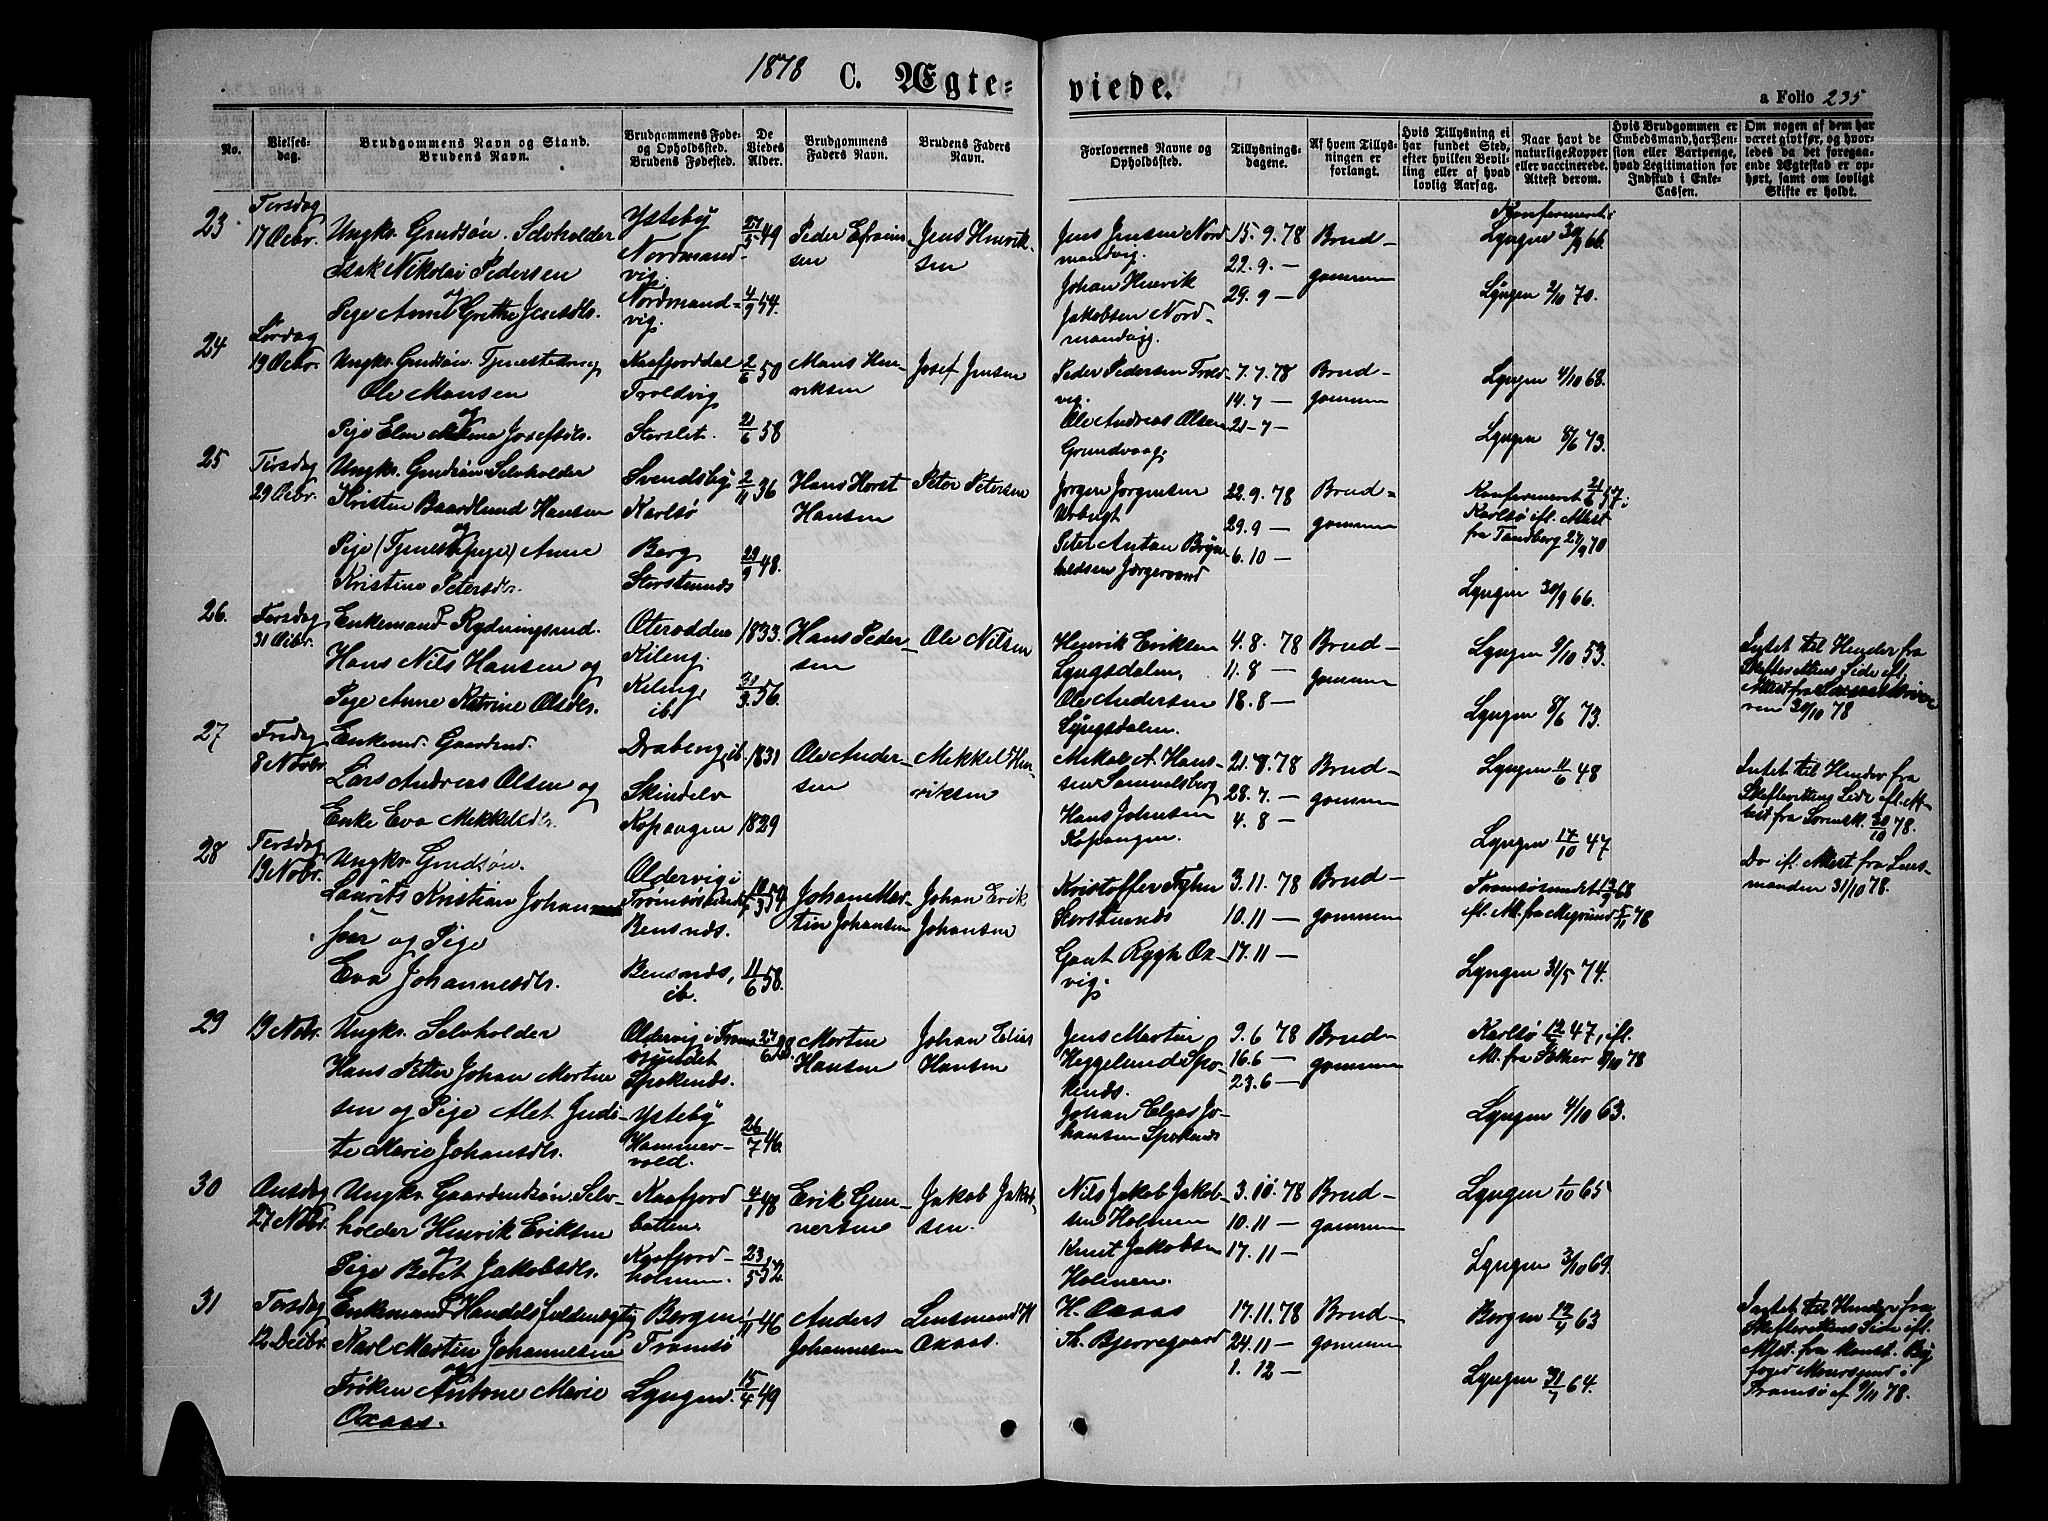 1878 C. Ægte=
viede.
a Folio 235
No.
Vielses-
dag.
Brudgommens Navn og Stand.
Brudens Navn.
Brudgommens Føde=
og Opholdssted.
Brudens Fødested.
De
Viedes
Alder.
Brudgommens
Faders Navn.
Brudens Faders
Navn.
Forlovernes Navne og
Opholdssted.
Tillysnings-
dagene.
Af hvem Tillys-
ningen er
forlangt.
Hvis Tillysning ei
har fundet Sted,
efter hvilken Bevil-
ling eller af hvad
lovlig Aarsag.
Naar havt de
naturlige Kopper
eller vaccinerede.
Attest derom.
Hvis Brudgommen er
Embedsmand, har Pen-
sion eller Vartpenge,
hvad Legitimation for
Indskud i Enke-
Cassen.
Om nogen af dem har
været givt før, og hvor-
ledes da det foregaa-
ende Ægteskab er op-
hørt, samt om lovligt
Skifte er holdt.
23
Torsdag
17 Octbr.
Ungkr. Gmdsøn. Selvholder
Isak Nikolai Pedersen
og
Pige Anne Grethe Jensdtr.
Ysteby
Nordmand-
vig.
Nordmand-
vig.
27/5 49
4/9 54.
Peder Efraim-
sen
Jens Henrik-
sen
Jens Jensen Nord-
mandvig.
Johan Henrik
Jakobsen Nord-
mandvig.
15. 9. 78
22. 9. —
29. 9 —
Brud-
gommen
Konfirmeret i
Lyngen 30/9 66.
Lyngen 2/10 70.
24
Lørdag
19 Octbr.
Ungkr. Gmdsøn. Tjenestedreng
Ole Mansen
og
Pige Elen Josefsdtr.
Kaafjorddal
Troldvig
Storslet.
2/6 50
21/6 58
Mans Hen-
riksen
Josef Jensen
Peder Pedersen Trold-
vig.
Ole Andreas Olsen
Grundvaag.
7. 7. 78
14. 7 —
21 - 7 —
Brud-
gommen
Lyngen 4/10 68.
Lyngen 8/6 73.
25
Tirsdag
29 Octbr.
Ungkr. Gmdsøn Selvholder
Kristen Baardlund Hansen
og
Pige (Tjenestepige) Anne
Kristine Petersdtr.
Svendsby
Karlsø
Berg
Storstennæs
2/11 36
29/9 48.
Hans Horst
Hansen
Peter Petersen
Jørgen Jørgensen
Urbugt
Peter Anton Bryn-
ildsen Jægervand
22. 9. 78
29. 9 —
6. 10 —
Brud=
gommen
Konfirmeret 21/6 57 i
Karlsø ifl. Attest
fra Tandberg 27/9 70
Lyngen 30/9 66.
26.
Torsdag
31 Octbr.
Enkemand Rydningsmd.
Hans Nils Hansen og
Pige Anne Katrine Olsdtr.
Oterodden
Kileng.
Kileng,
ib.
1833.
31/3. 56.
Hans Peder-
sen
Ole Nilsen
Henrik Eriksen
Lyngsdalen,
Ole Andersen
Lyngsdalen.
4. 8. 78
11. 8 —
18. 8 —
Brud-
gommen
Lyngen 9/10 53.
Lyngen 8/6 73.
Intet til Hinder fra
Skifterettens Side ifl.
Attest fra Sorenskrive
ren 30/10 78
27
Fredag
8 Novbr.
Enkemd. Gaardmd.
Lars Andreas Olsen og
Enke Eva Mekkelsdtr.
Drabeng, ib.
Skindelv
Kopangen
1831
1829
Ole Ander-
sen
Mekkel Hen-
riksen
Mikal A. Han-
sen Sammelsberg
Hans Johnsen
Kopangen.
21. 7. 78
28. 7. —
4. 8 —
Brud-
gommen
Lyngen 11/6 48
Lyngen 17/10 47
Intet til Hinder fra
Skifterettens Side ifl. At-
test fra Sorensk. 30/10 78.
Do ifl. Attest fra Lens-
manden 31/10 78.
28
Torsdag
19 Nobr.
Ungkr. Gmdsøn.
Laurits Kristian Johan
sen og Pige
Eva Johannesdtr.
Oldervig i
Tromsøsundet
Bensnæs.
Bensnæs,
ib.
54
11/6 58.
Johan Mar-
tin Johansen
Johan Erik
Johansen
Kristoffer Fyhn
Storstennæs
Gaut Rygh Ox-
vig.
3. 11. 78
10. 11 —
17. 11 —
Brud-
gommen
Tromsøsundet 68
ifl. At. fra 78
Lyngen 31/5 74.
29
19 Nobr.
Ungkr. Selvholder
Hans Petter Johan Morten
sen og Pige Alet Judi-
te Marie Johansdtr.
Oldervig i Trom-
søsundet
Spokenæs.
Ysteby
Hammer-
vold.
26/7 46.
Morten
Hansen
Johan Elias
Hansen
Jens Martin
Heggelund Spo-
kenæs.
Johan Elias Jo-
hansen Spokenæs
9. 6 78
16. 6 —
23. 6 —
Brud-
gommen
Karlsø 12/6 47, ifl.
At. fra 8/10 78
Lyngen 4/10 63.
30
Onsdag
27 Nobr.
Ungkr. Gaardmdsøn. Selv-
holder Henrik Eriksen
og
Pige Beret Jakobsdtr.
Kaafjord
botten.
Kaafjord-
holmen.
4/1 48
23/5 52
Erik Gun-
nersen
Jakob Jakob-
sen.
Nils Jakob Jakob-
sen Holmen
Knut Jakobsen
Holmen.
3. 10. 78
10. 11 —
17. 11 —
Brud-
gommen
Lyngen 1/10 65
Lyngen 3/10 69.
31
Torsdag
12 Decbr.
Enkemand Handelsfuldmægtig
Karl Martin Johannesen
og
Frøken Antone Marie
Oxaas.
Bergen
Tromsø
Lyngen.
1/11 46
15/4 49
Anders
Johannesen
Lensmand H
Oxaas.
H. Oxaas
Th. Bjerregaard
17. 11. 78
24. 11 —
1. 12 —
Brud-
gommen
Bergen 12/4 63
Lyngen 31/7 64.
Intet til Hinder fra
Skifterettens Side ifl.
Attst. fra konst. By
foged i
Tromsø af 9/11 78.